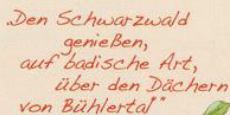 „Den Schwarzwald
genießen,
auf badische Art,
über den Dächern
von Bühlertal"